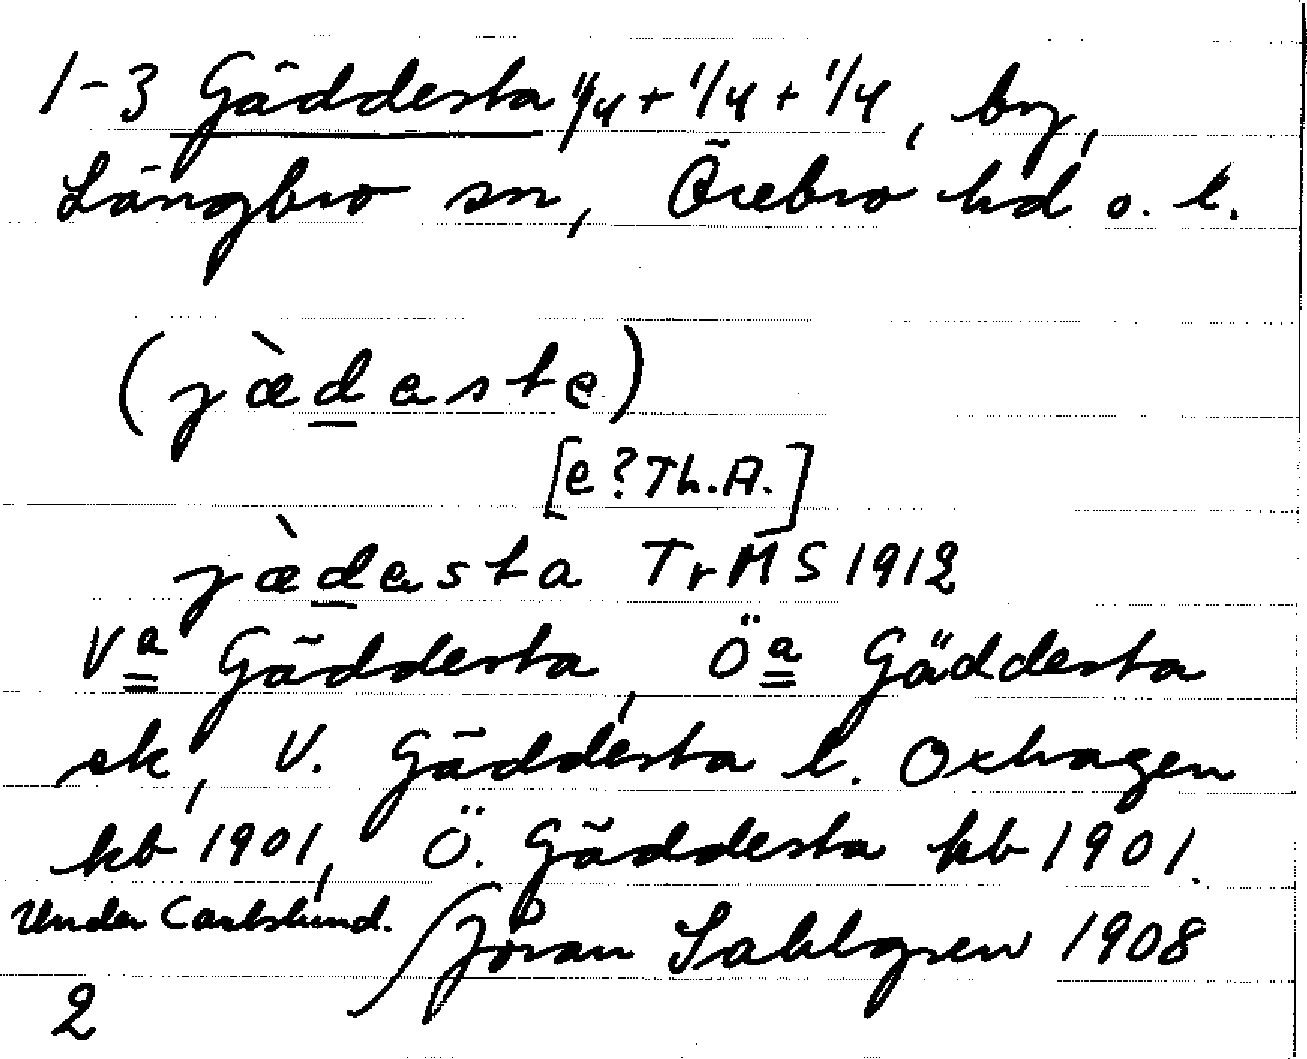 1-3 Gäddesta 1/4 + 1/4 + 1/4, by,
Längbro sn, Örebro hd o. l.
(jæ̀daste)
[e? Th.A.]
jæ̀dasta TrMS 1912
Va Gäddesta, Öa Gäddesta
ek, V. Gäddesta l. Oxhagen
kb 1901, Ö. Gäddesta kb 1901.
Under Carlslund. Jöran Sahlgren 1908
2